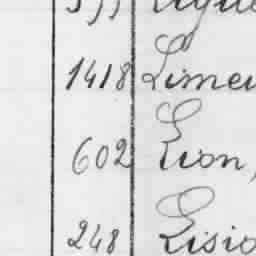 1418 Limeu
602 Lion,
248 Lisio